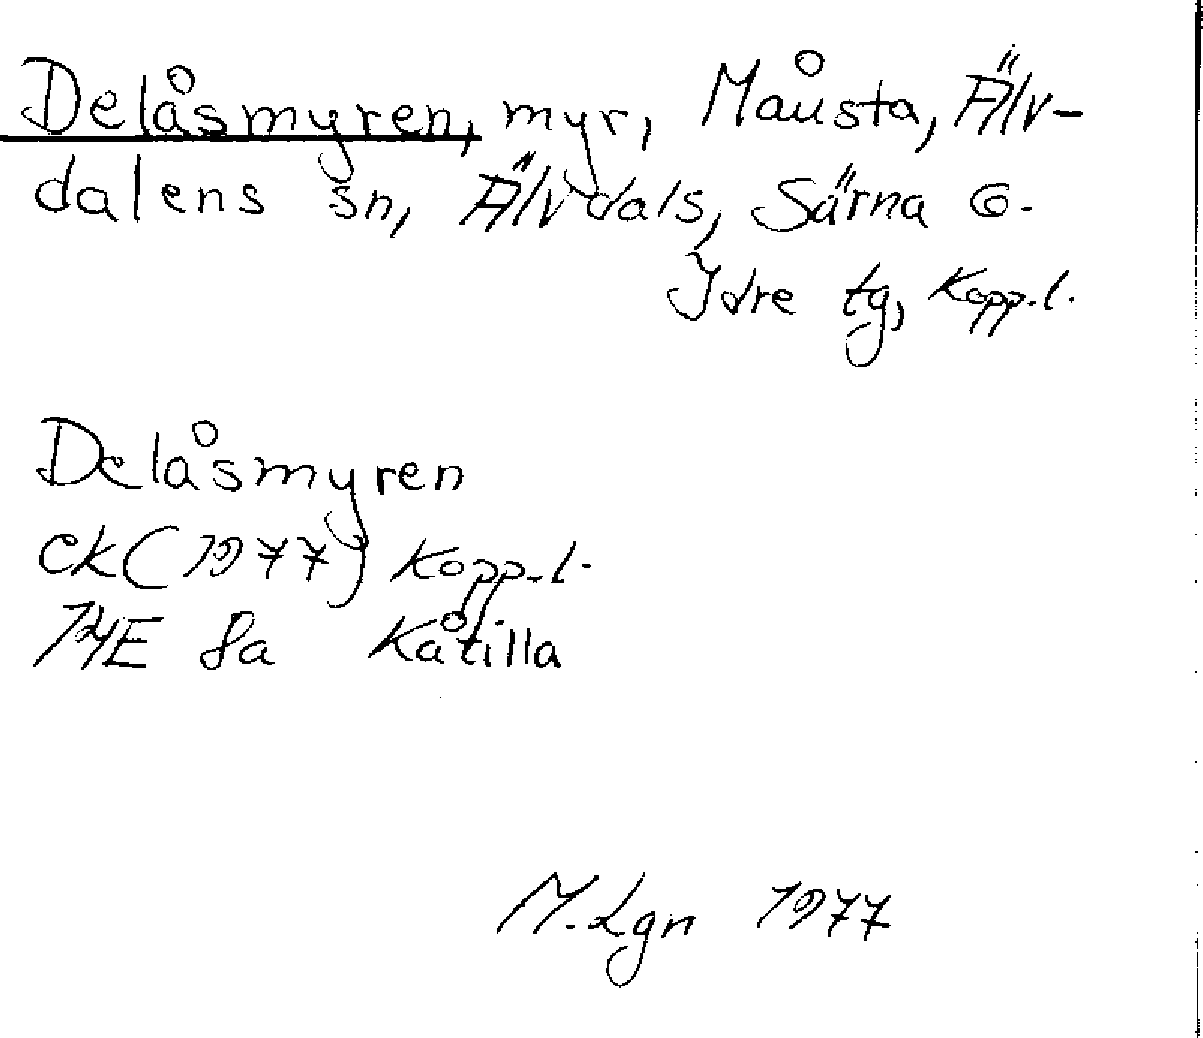 Delåsmyren, myr, Måusta, Älv-
dalens sn, Älvdals, Särna o.
Idre tg, Kopp.l.
Delåsmyren
ek (1977) Kopp.l.
14E 8a Kåtilla
M.Lgn 1977